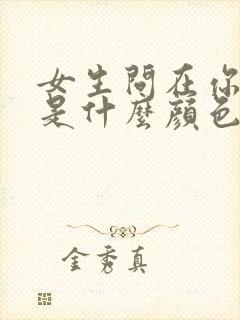 女生問在你
是什麼顏色
金秀真